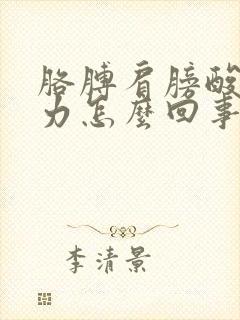 胳膊肩膀酸
力怎麼回事
李清景